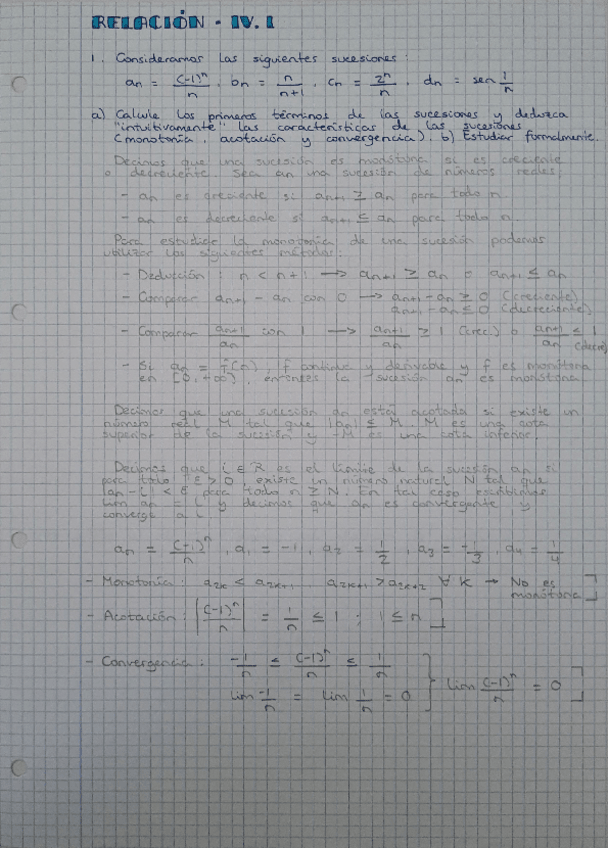 RELACIÓN - IV. I
1. Consideramos las siguientes sucesiones:
an = (-1)^n/n, bn = n/n+1, cn = 2^n/n, dn = sen 1/n
a) Calcule los primeros términos de las sucesiones y deduzca
"intuitivamente" las características de las sucesiones
(monotonía, acotación y convergencia). b) Estudiar formalmente.
Decimos que una sucesión es monótona si es creciente
o decreciente. Sea an una sucesión de números reales:
- an es creciente si an+1 ≥ an para todo n
- an es decreciente si an+1 ≤ an para todo n
Para estudiar la monotonía de una sucesión podemos
utilizar los siguientes métodos:
- Deducción n < n+1 → an+1 ≥ an o an+1 ≤ an
- Comparar an+1 - an con 0 → an+1 - an ≥ 0 (creciente)
an+1 - an ≤ 0 (decreciente)
- Comparar an+1/an con 1 → an+1/an ≥ 1 (crec) o an+1/an ≤ 1 (decre)
- Si an = f(n), f continua y derivable y f es monótona
en [0, +∞), entonces la sucesión an es monótona
Decimos que una sucesión an está acotada si existe un
número real M tal que |an| ≤ M. M es una cota
superior de la sucesión y -M es una cota inferior
Decimos que L ∈ R es el límite de la sucesión an si
para todo ε > 0, existe un número natural N tal que
|an - L| < ε para todo n ≥ N. En tal caso escribimos
lim an = L y decimos que an es convergente y
converge a L
an = (-1)^n/n, a1 = -1, a2 = 1/2, a3 = -1/3, a4 = 1/4
- Monotonía: a2k < a2k+1, a2k+1 > a2k+2 ∀ k → No es
monótona
- Acotación: |(-1)^n/n| = 1/n ≤ 1 ; 1 ≤ n
- Convergencia: -1/n ≤ (-1)^n/n ≤ 1/n
lim -1/n = lim 1/n = 0 } lim (-1)^n/n = 0